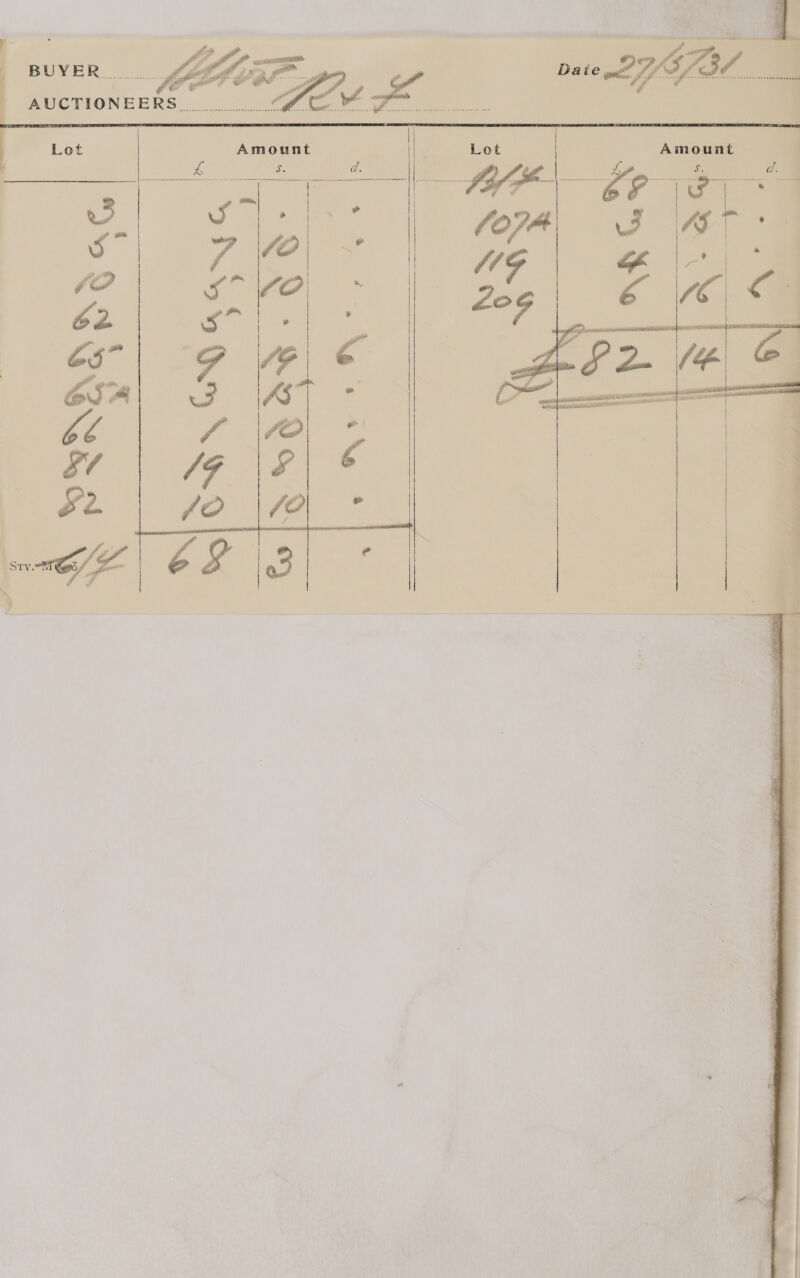 BUYER
Date 27/5/31
AUCTIONEERS
Lot Amount Lot Amount
£ s. d. £ s. d.
B/F 68 3 .
3 5 . .
107A 3 15 .
5 7 10 .
119 4 . .
10 5 10 .
209 6 16 6
62 5 . .
65 9 19 6
£82 14 6
65A 3 15 .
66 1 10 .
81 19 8 6
82 10 10 .
Sty. C/F 68 3 .